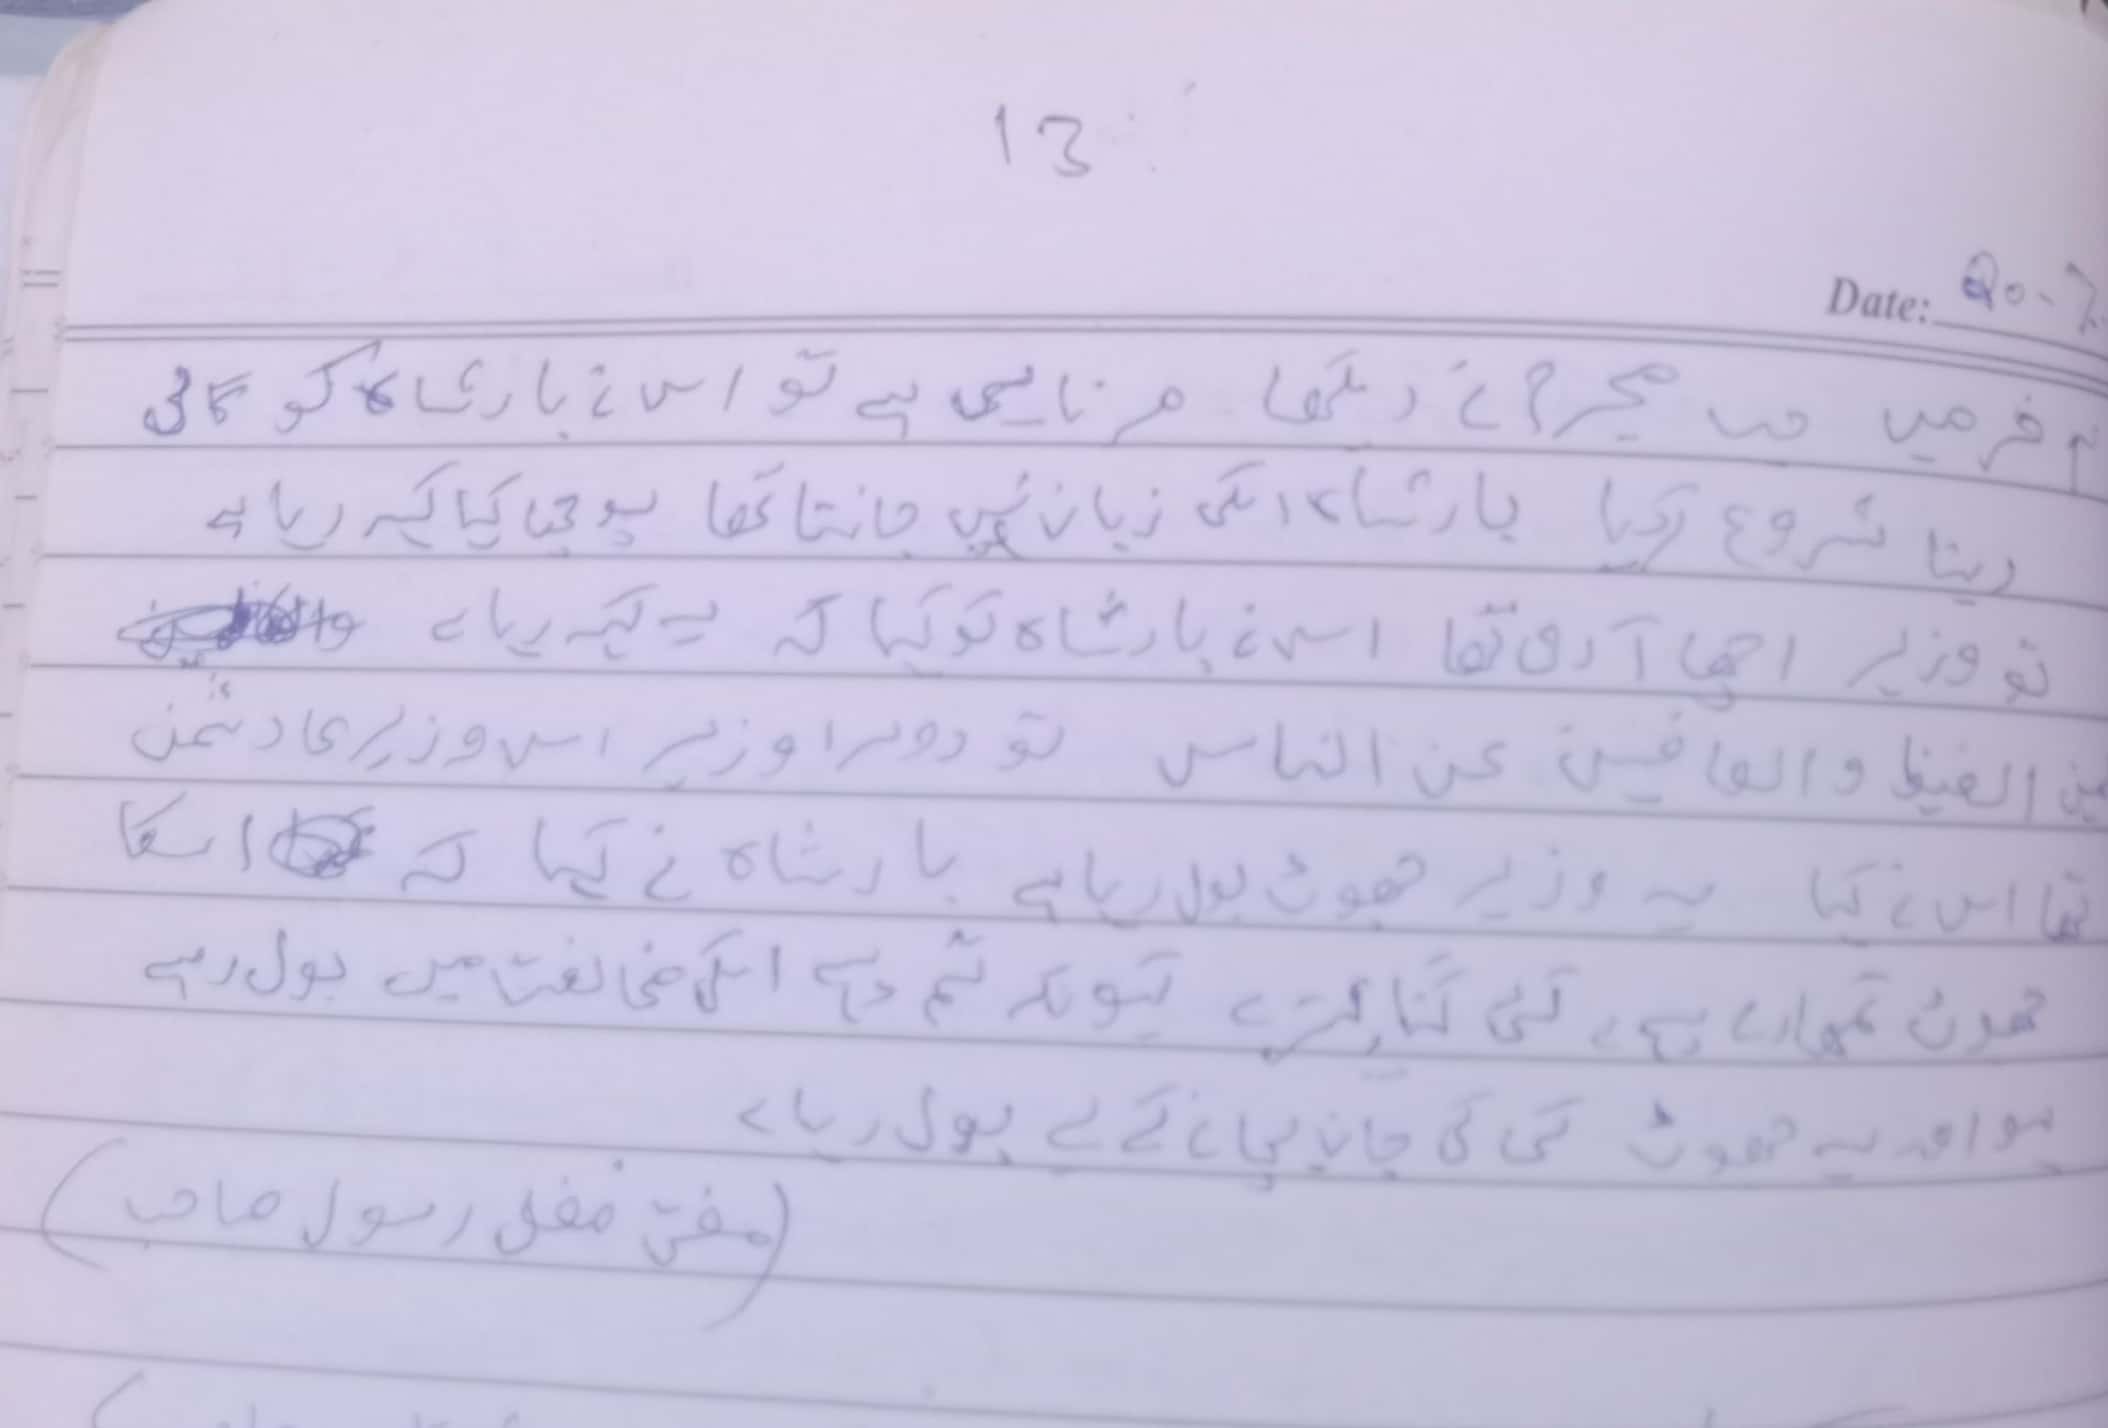 13
Date: 20-7
آخر میں جب مجرم نے دیکھا مرنا ہی ہے تو اس نے بادشاہ کو گالی
دینا شروع کردیا بادشاہ اسکی زبان نہیں جانتا تھا پوچھا کیا کہہ رہا ہے
تو وزیر اچھا آدمی تھا اس نے بادشاہ کو کہا کہ یہ کہہ رہا ہے
الغیظ والعافین عن الناس تو دوسرا وزیر اس وزیر کا دشمن
تھا اس نے کہا یہ وزیر جھوٹ بول رہا ہے بادشاہ نے کہا کہ اسکا
جھوٹ تمہارے سچ سے کئی گنا بہتر ہے کیونکہ تم اسکی مخالفت میں بول رہے
ہو اور یہ جھوٹ کسی کی جان بچانے کے لے بول رہا ہے
(مفتی فضل رسول صاحب)